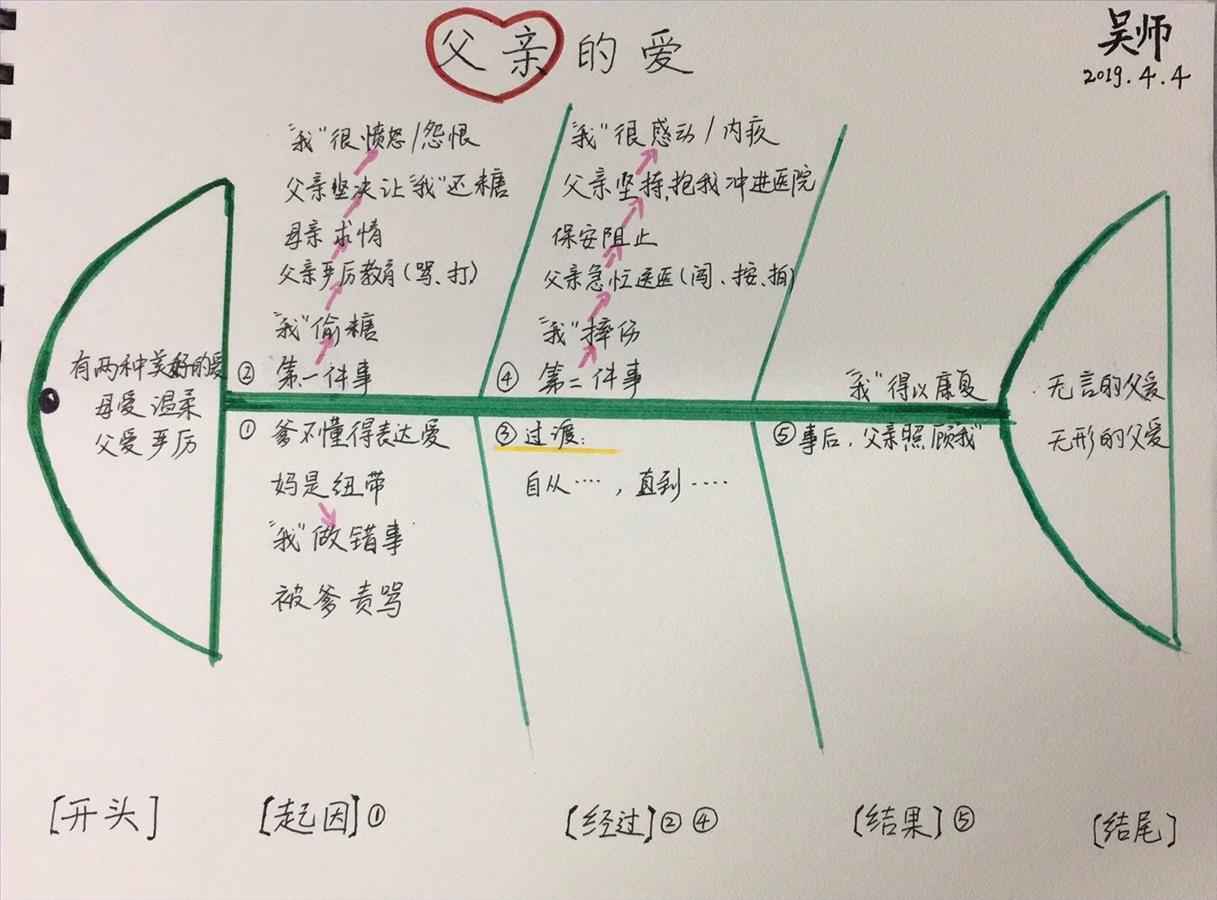 父亲的爱
吴师
2019.4.4
有两种美好的爱
母爱 温柔
父爱 严厉
② 第一件事
"我"偷糖
父亲严厉教育(骂、打)
母亲求情
父亲坚决让"我"还糖
"我"很愤怒/怨恨
① 爹不懂得表达爱
妈是纽带
"我"做错事
被爹责骂
③ 过渡:
自从····,直到····
④ 第二件事
"我"摔伤
父亲急忙送医(闯、按、拍)
保安阻止
父亲坚持,抱我冲进医院
"我"很感动/内疚
"我"得以康复
⑤ 事后,父亲照顾"我"
无言的父爱
无形的父爱
[开头]
[起因]①
[经过]②④
[结果]⑤
[结尾]